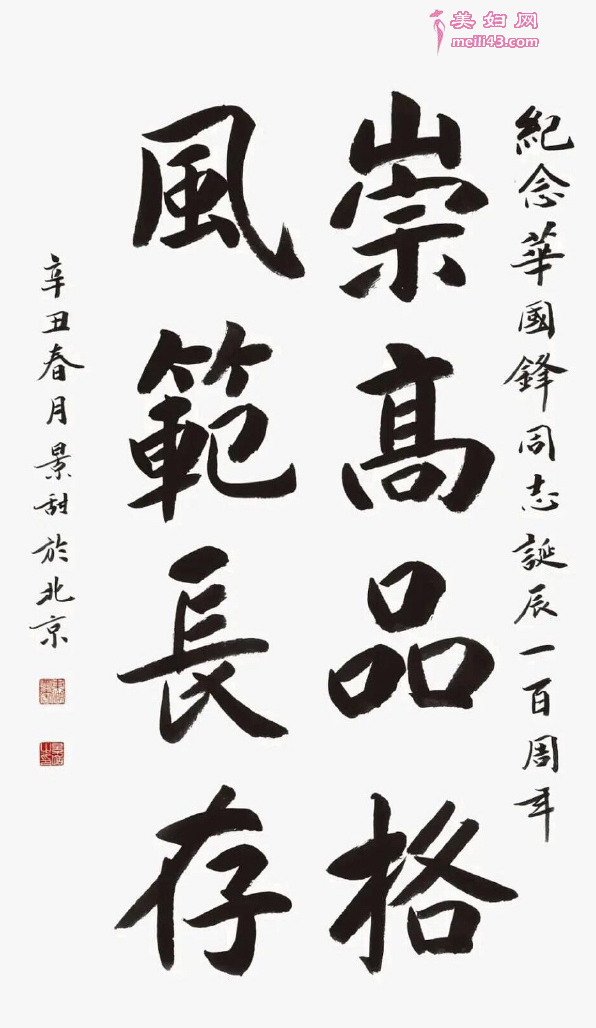 美妇网
meili43.com
紀念華國鋒同志誕辰一百周年
崇高品格
風範長存
辛丑春月景甜於北京